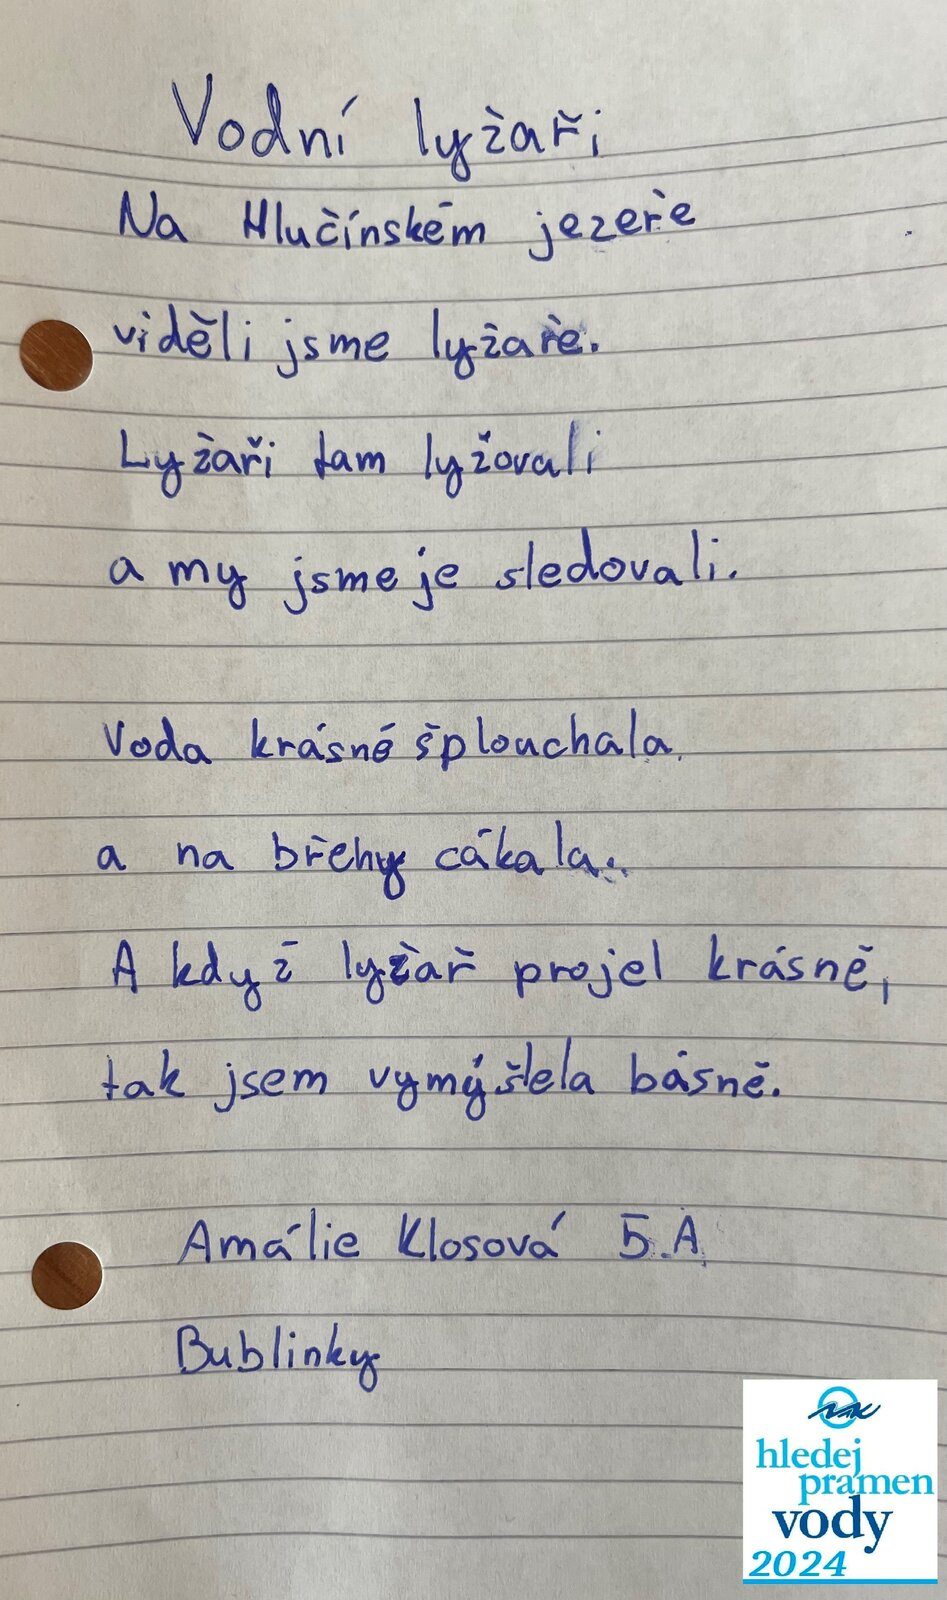 Vodní lyžaři
Na Hlučínském jezeře
viděli jsme lyžaře.
Lyžaři tam lyžovali
a my jsme je sledovali.
Voda krásně šplouchala
a na břehy cákala.
A když lyžař projel krásně,
tak jsem vymýšlela básně.
Amálie Klosová 5.A
Bublinky
hledej
pramen
vody
2024